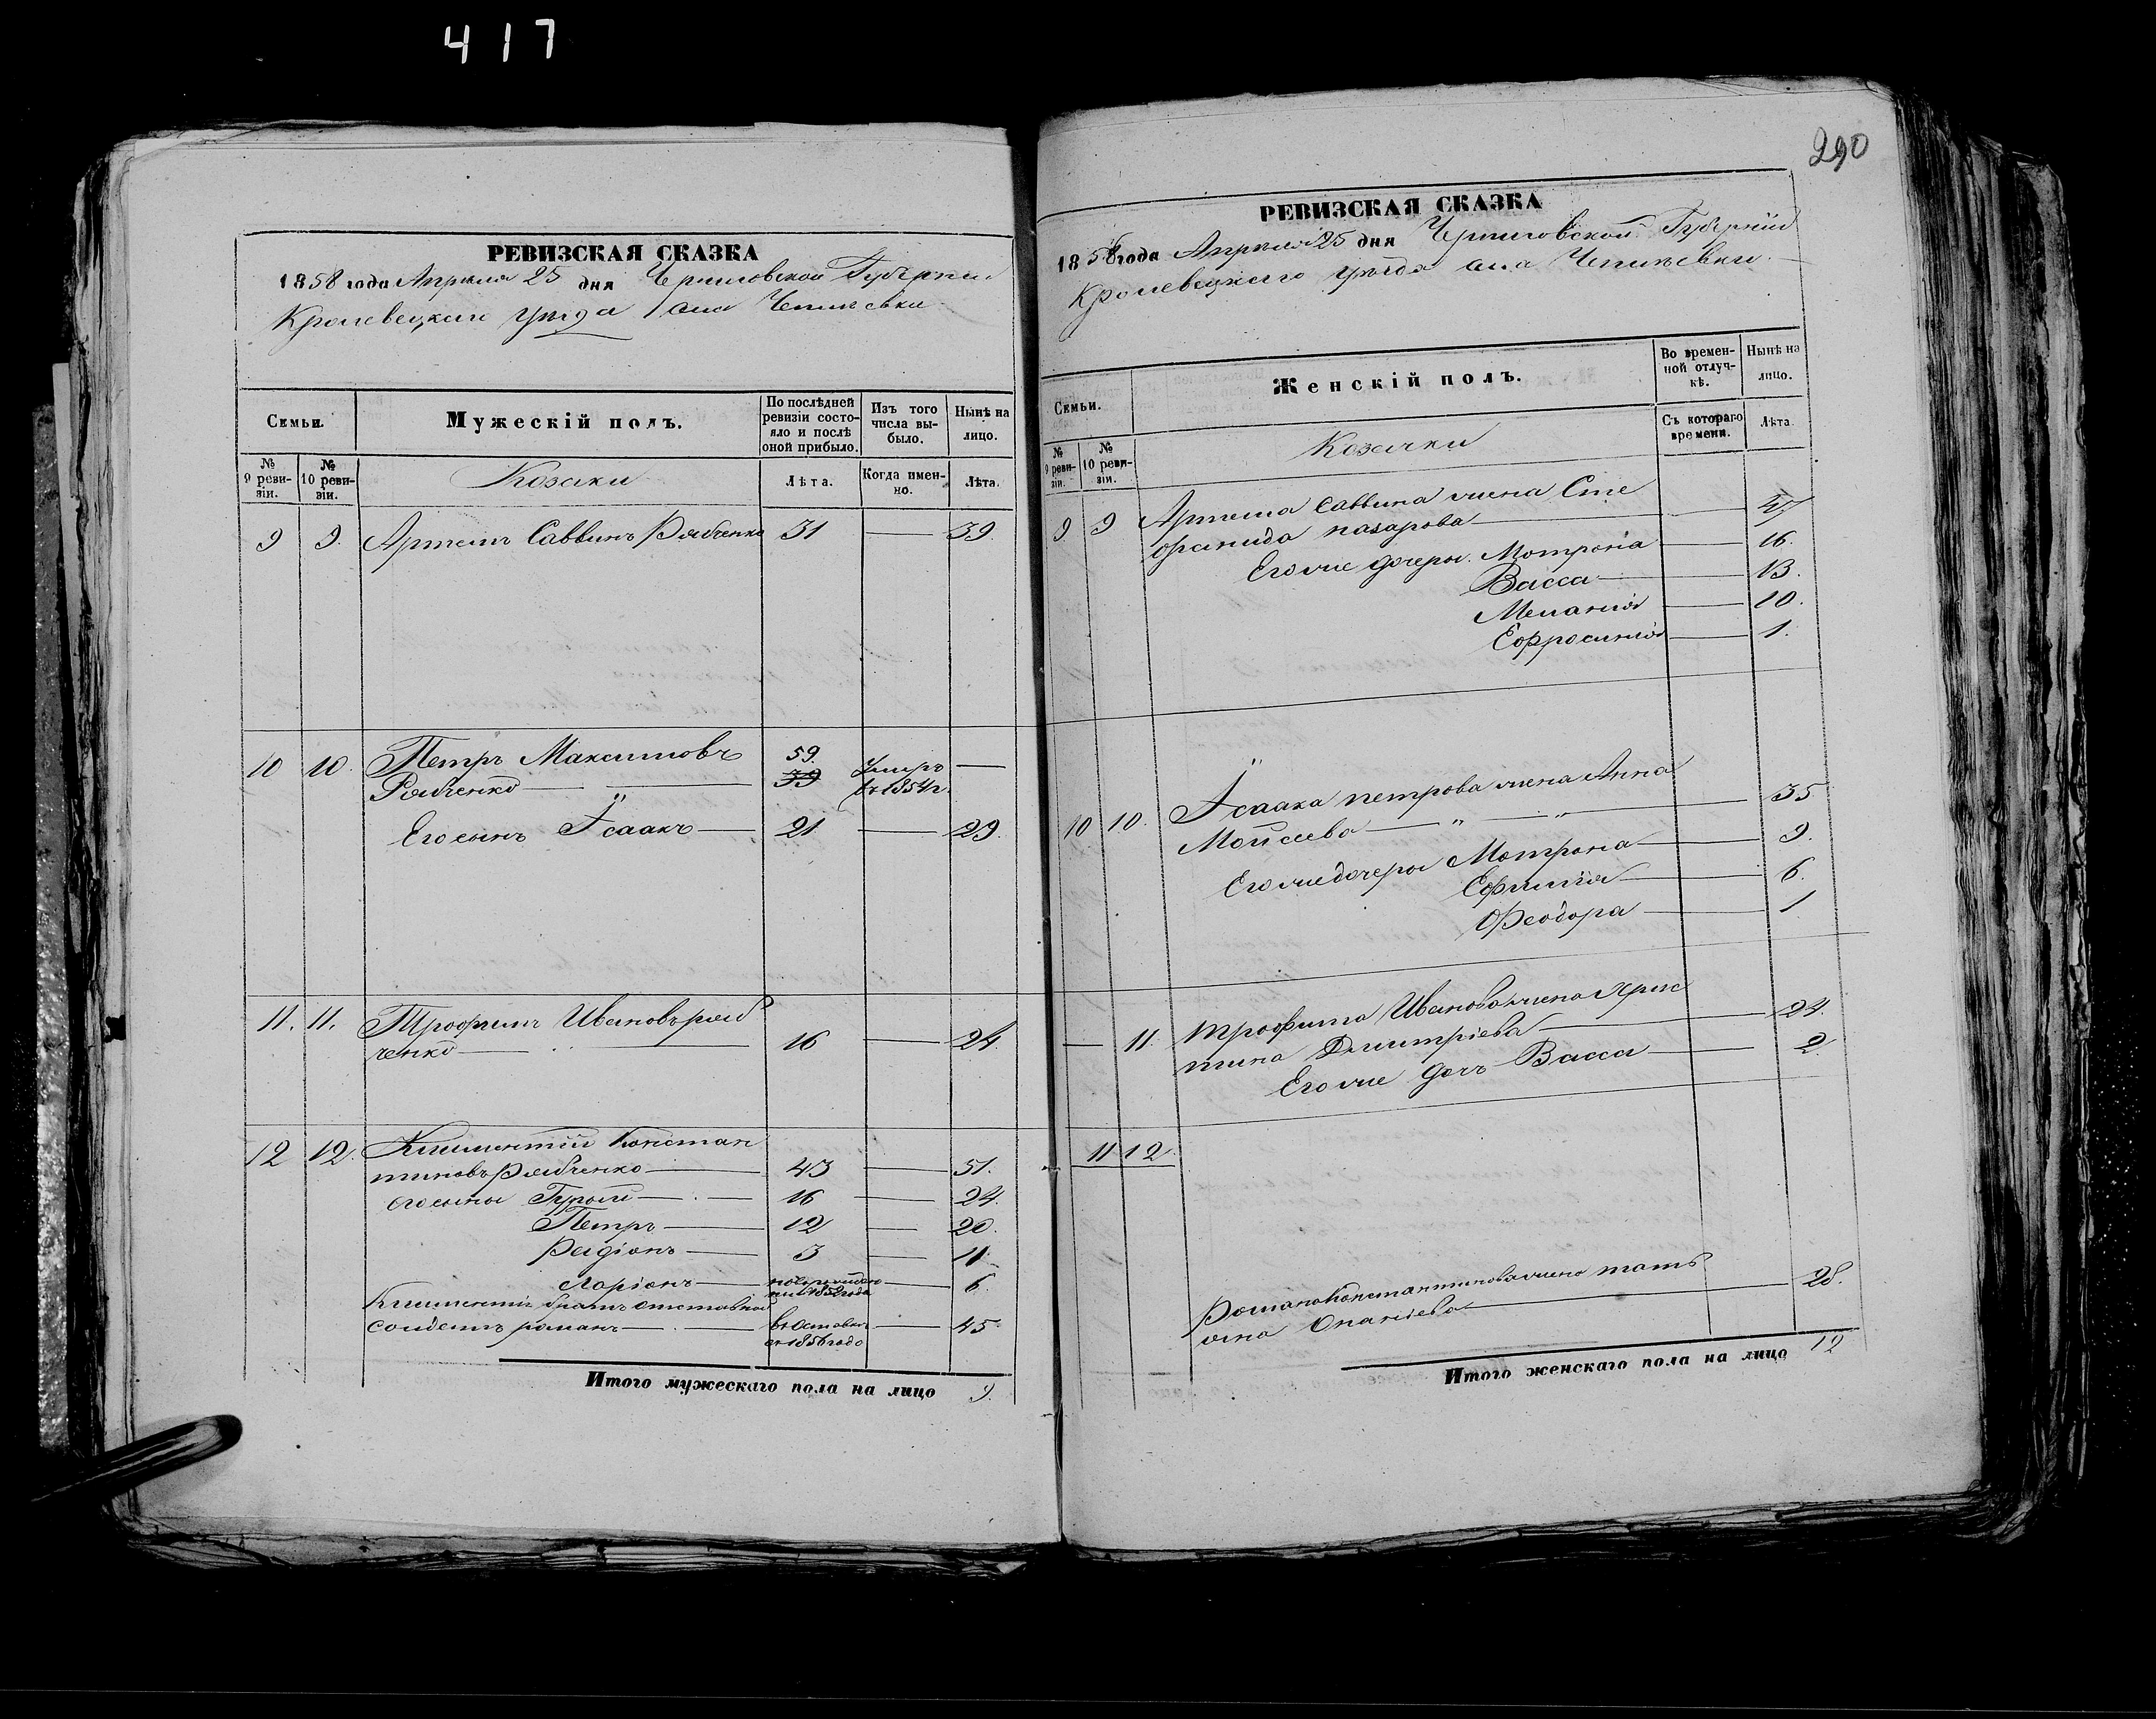 417
РЕВИЗСКАЯ СКАЗКА
1858 года Апреля 25 дня Черниговской Губернии
Кролевецкаго уѣзда
Семьи.
Мужескій полъ.
По послѣдней ревизіи состояло и послѣ оной прибыло.
Изъ того числа выбыло.
Нынѣ на лицо.
№ 9 ревизіи.
№ 10 ревизіи.
Козаки
Лѣта.
Когда именно.
Лѣта.
9 9. Артемъ Саввинъ Рябченко 31 — 39.
10 10. Петръ Максимовъ 59. Умеръ —
Рябченко — — 39 въ 1854 г.
Его сынъ Ісаакъ — 21 — 29.
11. 11. Трофимъ Ивановъ ряб
ченко — — 16 — 24.
12 12. Климентій Констан
тиновъ Рябченко — 43 — 51.
его сыны — 16 — 24.
Петръ — 12 — 20.
Радіонъ — 3 — 11.
Ларіонъ — 1852 года — 6.
Климентія братъ отставной
солдатъ романъ — въ отставкѣ — 45
съ 1856 года
Итого мужескаго пола на лицо 9.
290
РЕВИЗСКАЯ СКАЗКА
1858 года Апреля 25 дня Черниговской Губерніи
Кролевецкаго уѣзда села Чепиевки
Семьи.
Женскій полъ.
Во временной отлучкѣ.
Нынѣ на лицо.
№ 9 ревизіи.
№ 10 ревизіи.
Козачки
Съ котораго времени.
Лѣта.
9 9 Артема Саввина жена Сте
фанида назарова — 47
Его же дочери. Мотрона — 16.
Васса — 13.
Меланія — 10.
Ефросинія — 1.
10 10. Ісаака петрова жена Анна
Мойсеева — " — " — 35
Его же дочери Мотрона — 9.
Ефимія — 6.
Феодора — 1
— 11. трофима Иванова жена Хрис
тина Дмитріева — 24.
Его же дочь Васса — 2.
11 12.
Романа Константинова жена тать
яна — 28.
Итого женскаго пола на лицо 12